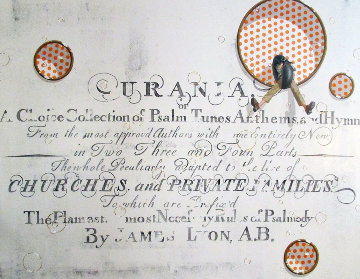 URANIA.
or
A Choice Collection of Psalm Tunes, Anthems, and Hymn
From the most approv'd Authors with some Entirely New
in Two Three and Four Parts
The whole Peculiarly adapted to the Use of
CHURCHES, and PRIVATE FAMILIES
To which are Prefix'd
The Plainest, most Necessary Rules of Psalmody
By JAMES LYON, A.B.